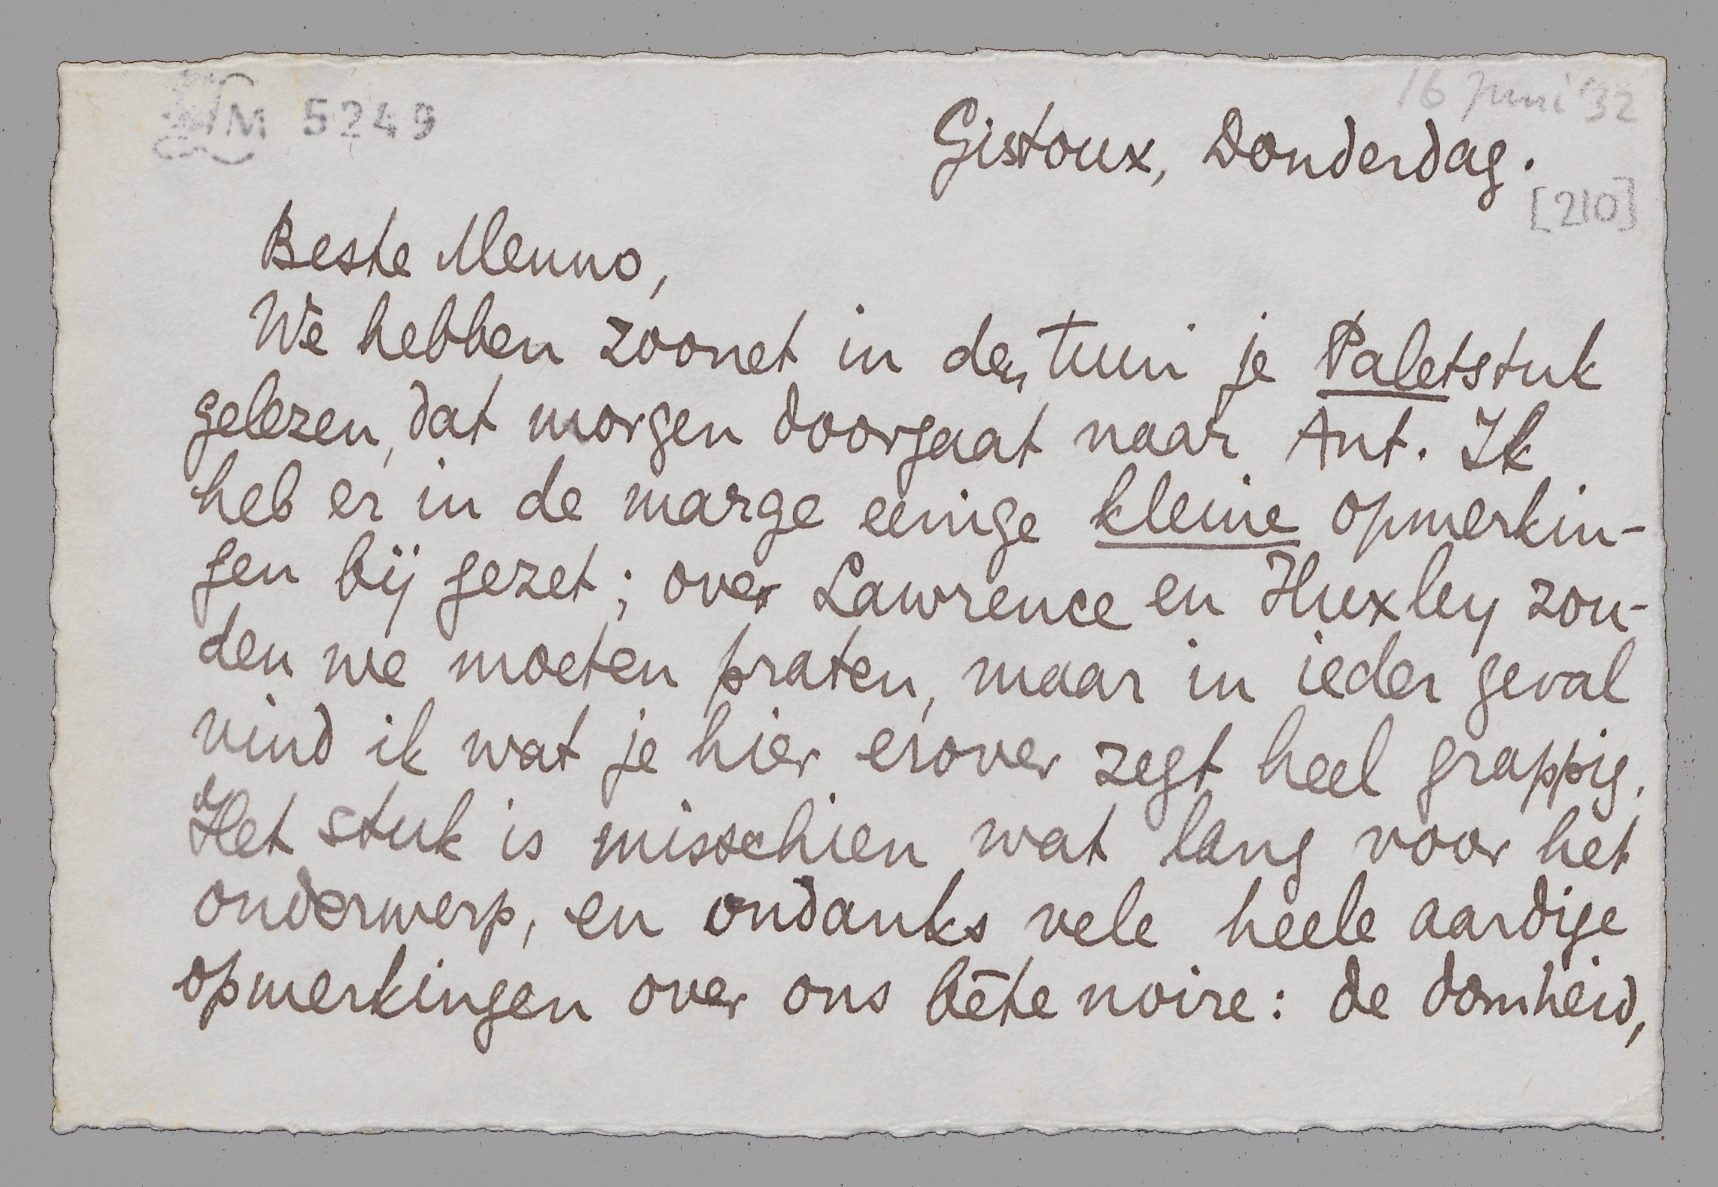 M 5249
16 Juni '32
Gistoux, Donderdag.
[210]
Beste Menno,
We hebben zoonet in den tuin je Paletstuk
gelezen, dat morgen doorgaat naar Ant. Ik
heb er in de marge eenige kleine opmerkin-
gen bij gezet; over Lawrence en Huxley zou-
den we moeten praten, maar in ieder geval
vind ik wat je hier erover zegt heel grappig.
Het stuk is misschien wat lang voor het
onderwerp, en ondanks vele heele aardige
opmerkingen over ons bête noire: de domheid,